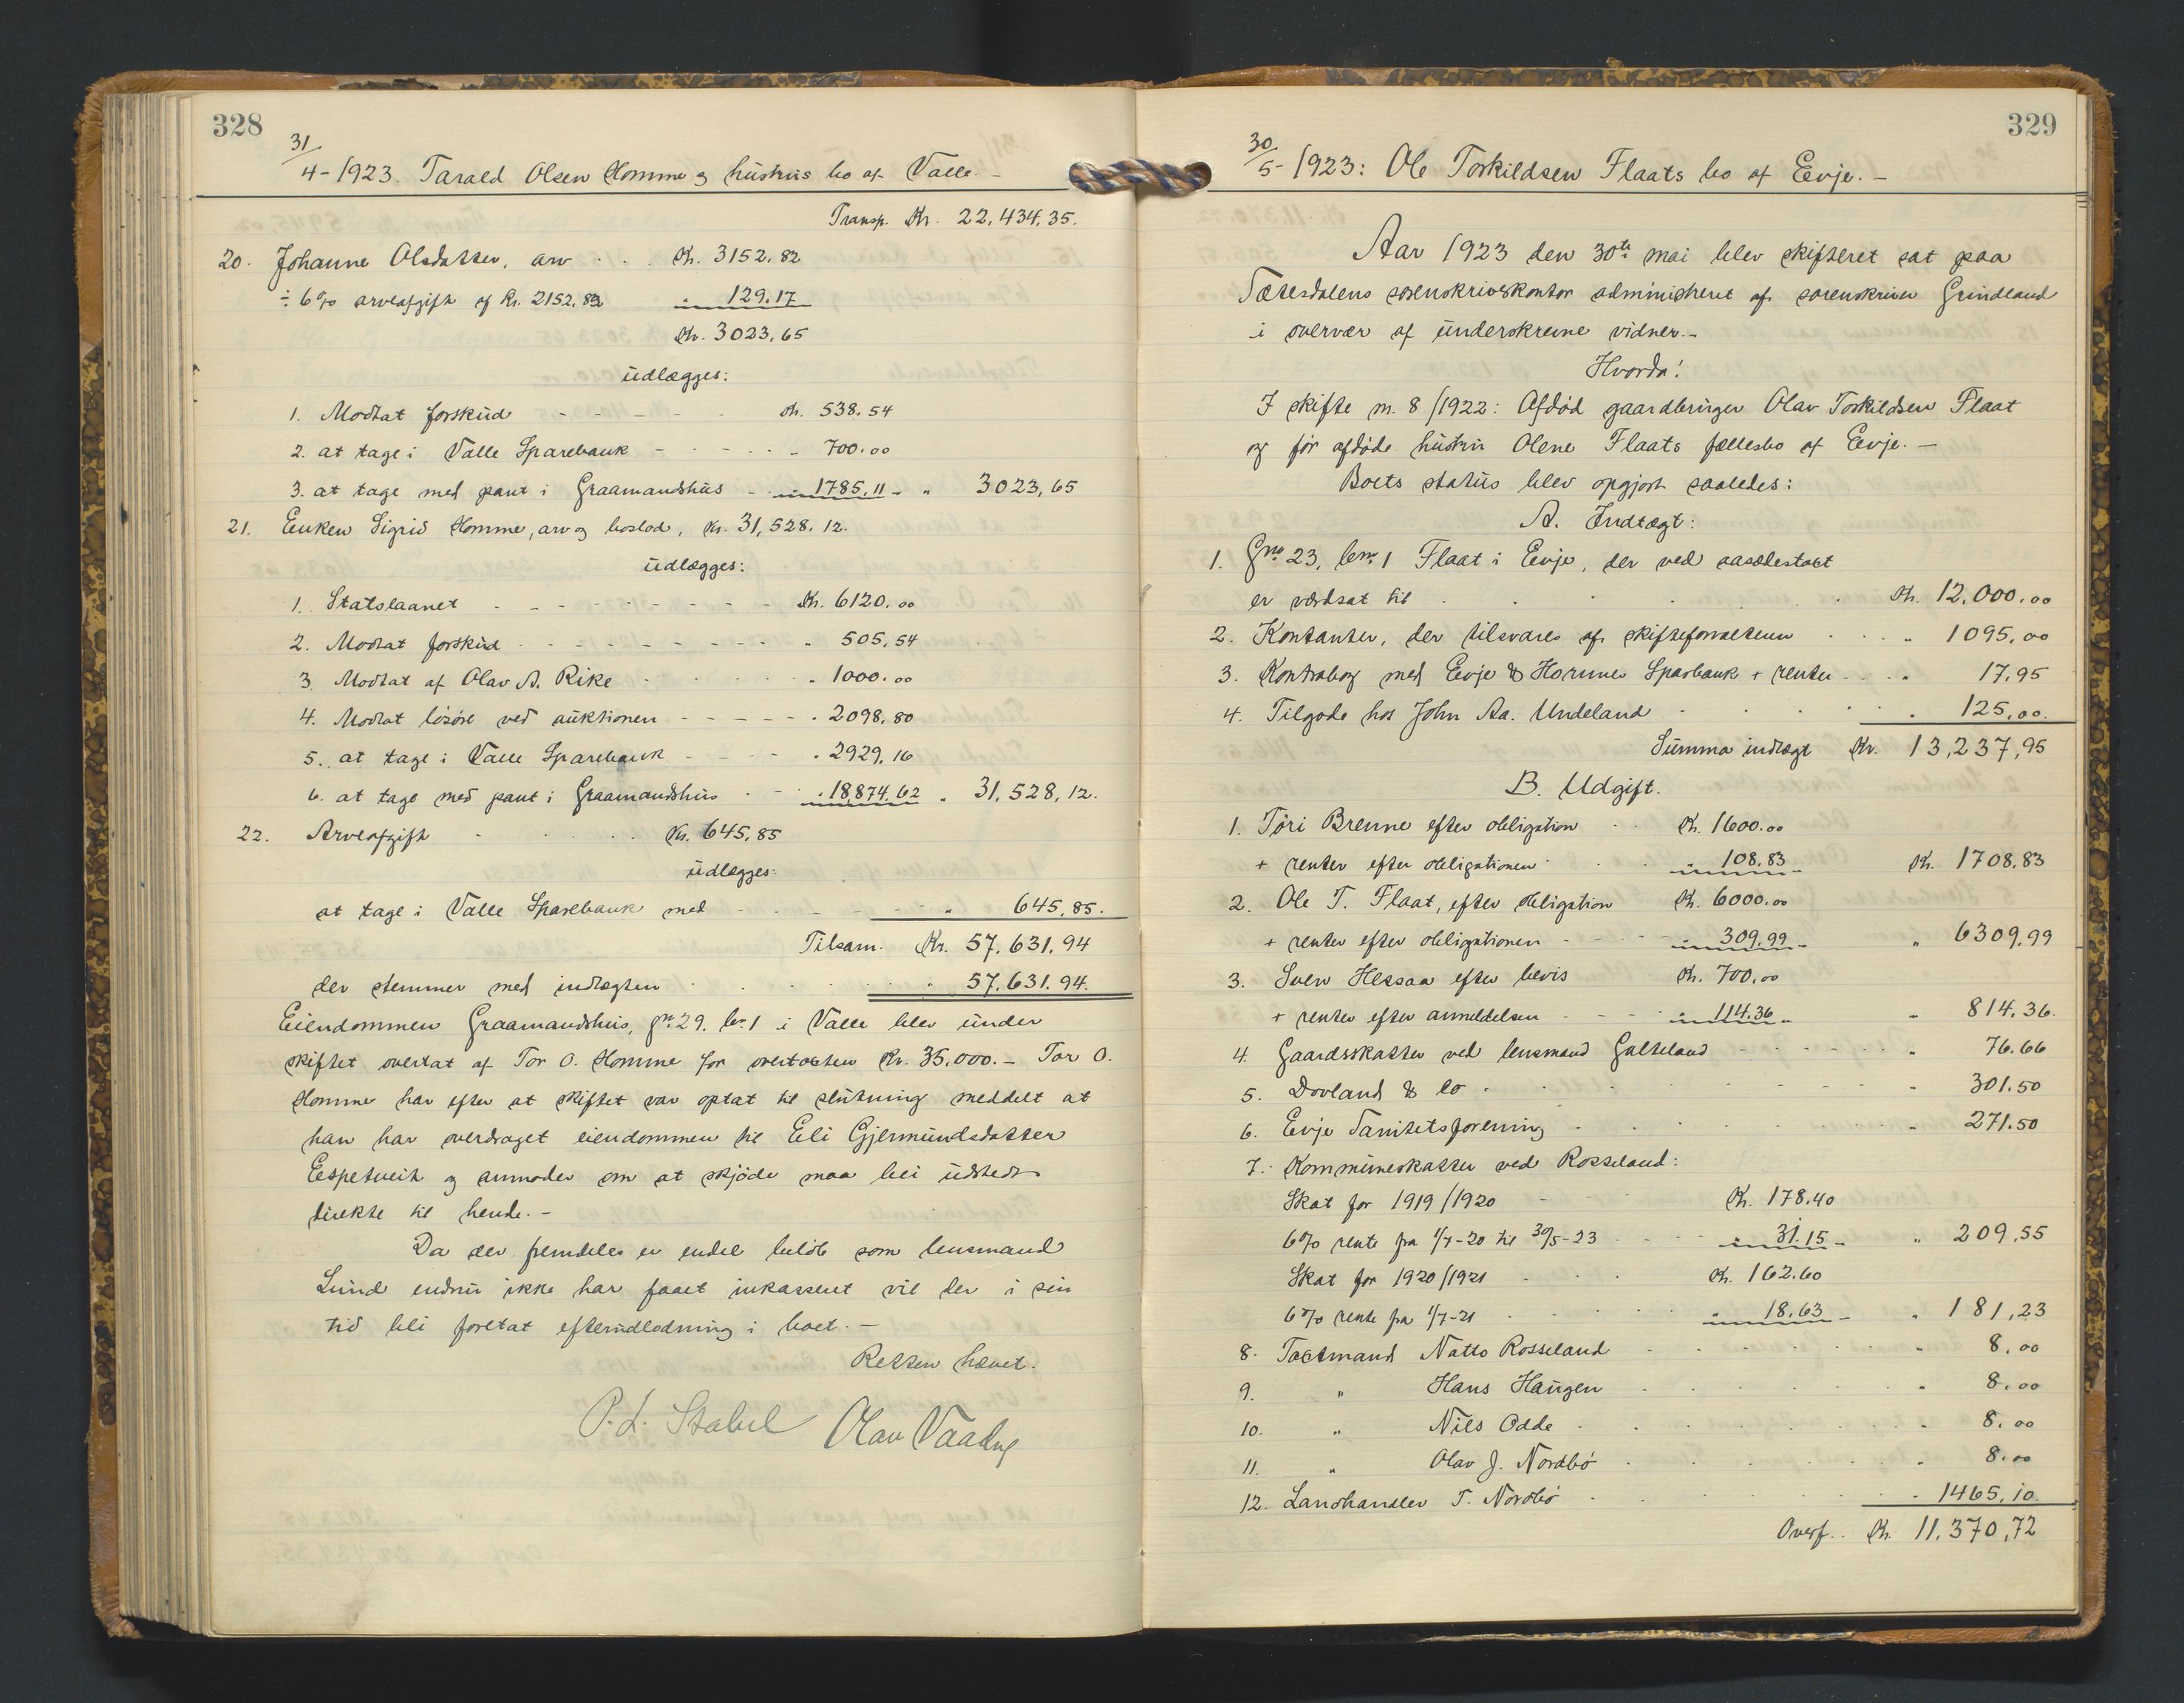 328
31/4-1923. Tarald Olsen Homme og hustrus bo af Valle. -
Transp. Kr. 22,434,35.
20. Johanne Olsdatter, arv . . . Kr. 3152,82
÷ 6% arveafgift af Kr. 2152,82 " 129.17
Kr. 3023,65
udlægges:
1. Mottat forskud - - - - - Kr. 538,54
2. at tage i Valle Sparebank - - - - - - 700.00
3. at tage med pant i Graamandshus - " 1785,11 - " 3023,65
21. Enken Sigrid Homme, arv og boslod, Kr. 31,528.12.
udlægges:
1. Statslaanet - - - - - - - - - Kr. 6120,00
2. Mottat forskud - - - - - - - - - " 505,54
3. Mottat af Olav A. Rike - - - - - " 1000.00
4. Mottat løsøre ved auktionen - - - - - - " 2098,80
5. at tage i Valle Sparebank - - - - " 2929,16
6. at tage med pant i Graamandshus - - " 18,874,62 " 31,528,12.
22. Arveafgift . . . . . Kr. 645,85
udlægges:
at tage i Valle Sparebank med - - - - - " 645,85.
Tilsam. Kr. 57,631,94
der stemmer med indtægten . . . . . . " 57,631.94.
Eiendommen Graamandshus, gnr 29. bnr 1 i Valle blev under
skiftet overtat af Tor O. Homme for overtaksten Kr. 35,000. - Tor O.
Homme har efter at skiftet var optat til slutning meddelt at
han har overdraget eiendommen til Eli Gjermundsdatter
Espetveit og anmoder om at skjøde maa bli udstedt
direkte til hende. -
Da der fremdeles er endel beløb som lensmand
Lund endnu ikke har faaet inkasseret vil der i sin
tid bli foretat efterudlodning i boet. -
Retten hævet.
P. L. Stabel Olav Vaadny
329
30/5-1923: Ole Torkildsen Flaats bo af Evje. -
Aar 1923 den 30te mai blev skifteret sat paa
Sætesdalens sorenskriverkontor administreret af sorenskriver Grindland
i overvær af underskrevne vidner. -
Hvorda!
I skifte nr. 8/1922: Afdød gaardbruger Olav Torkildsen Flaat
og før afdøde hustru Olene Flaats fællesbo af Evje. -
Boets status blev opgjort saaledes:
A. Indtægt:
1. Gnr 23, bnr 1 Flaat i Evje, der ved aasædestakst
er værdsat til . . . . . . Kr. 12,000.00
2. Kontanter, der tilsvares af skifteforvalteren . . . . " 1095,00
3. Kontrabog med Evje & Hornnes Sparbank + renter . . . " 17,95
4. Tilgode hos John Aa. Undeland . . . . . . " 125,00.
Summa indtægt Kr. 13,237,95
B. Udgift.
1. Tøri Brenne efter obligation . . Kr. 1600.00
+ renter efter obligationen . . . " 108,83 - Kr. 1708,83
2. Ole T. Flaat, efter obligation Kr. 6000.00
+ renter efter obligationen - - - - " 309,99 - " 6309,99
3. Sven Hessaa efter bevis Kr. 700,00
+ renter efter anmeldelsen - - - " 114.36 - " 814,36.
4. Gaardsskatter ved lensmand Galteland - - - - - - - " 76.66
5. Dovland & Co . . . . . . . . " 301.50
6. Evje Sanitetsforening . . . . . . . . " 271.50
7. Kommuneskatter ved Rosseland:
Skat for 1919/1920 - - - Kr. 178,40
6% rente fra 1/7-20 til 30/5-23 . . . . " 31.15 - " 209,55
Skat for 1920/1921 . . . . Kr. 162.60
6% rente fra 1/7-21 . . . . . . " 18,63 - " 181,23
8. Takstmand Natto Rosseland . . . . . . " 8,00
9. " Hans Haugen . . . . . . . " 8,00
10. " Nils Odde . . . . . . . . " 8,00
11. " Olav J. Nordbø . . . . . . . " 8,00
12. Landhandler T. Nordbø . . . . . . . " 1465,10.
Overf.. Kr. 11,370,72